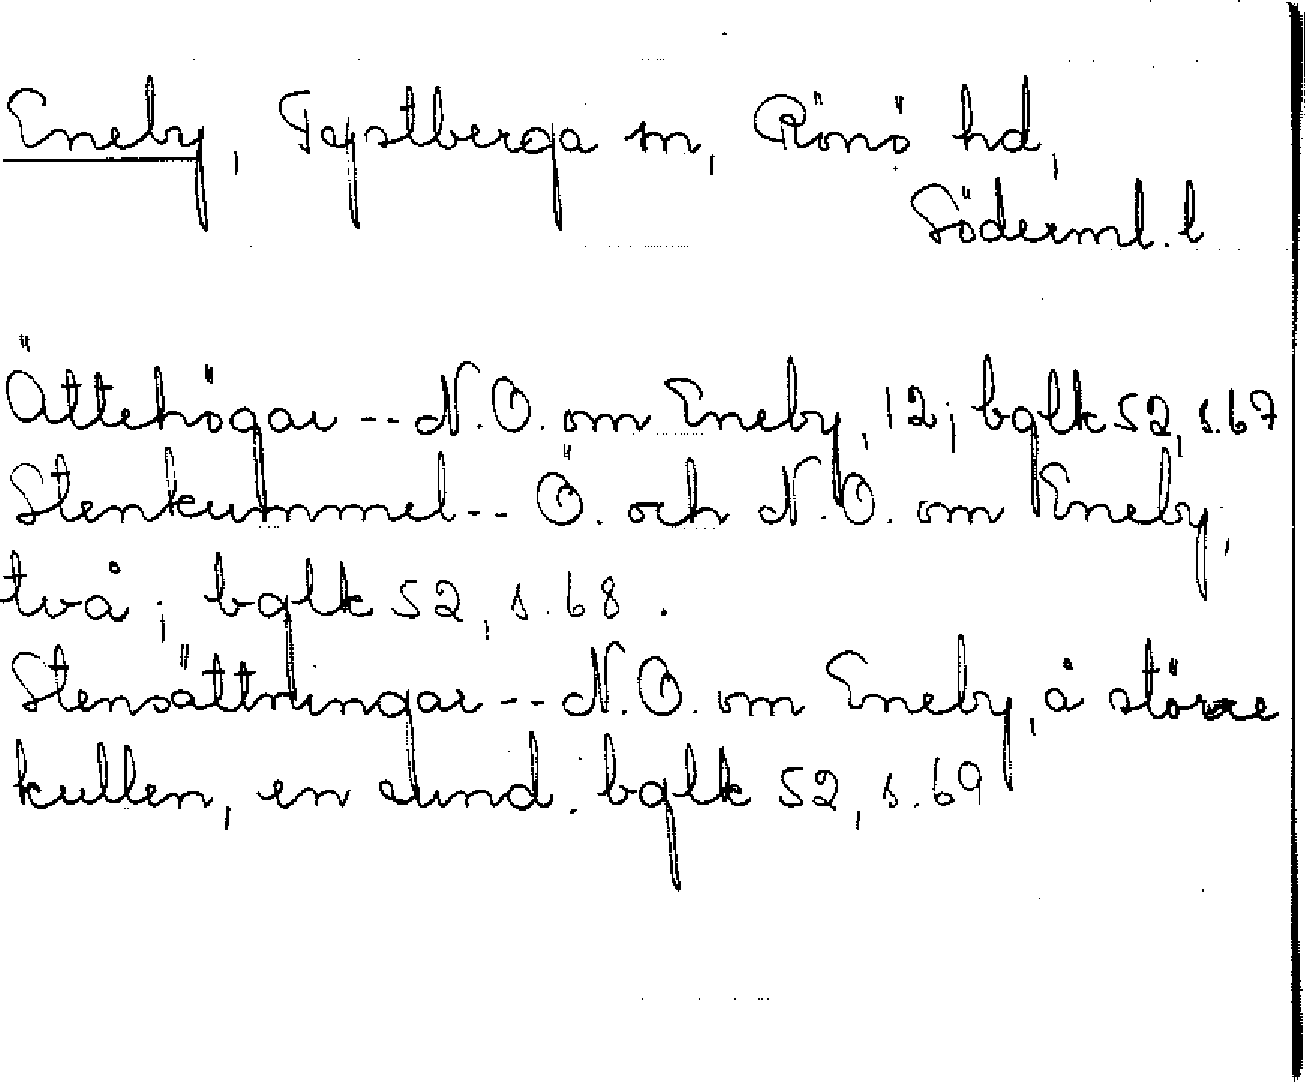 Eneby, Tystberga sn, Rönö hd,
Söderml. l
Ättehögar -- N.O. om Eneby, 12; bglk 52, s. 67
Stenkummel -- Ö. och N.O. om Eneby,
två; bglk 52, s. 68.
Stensättningar -- N.O. om Eneby, å större
kullen, en rund. bglk 52, s. 69